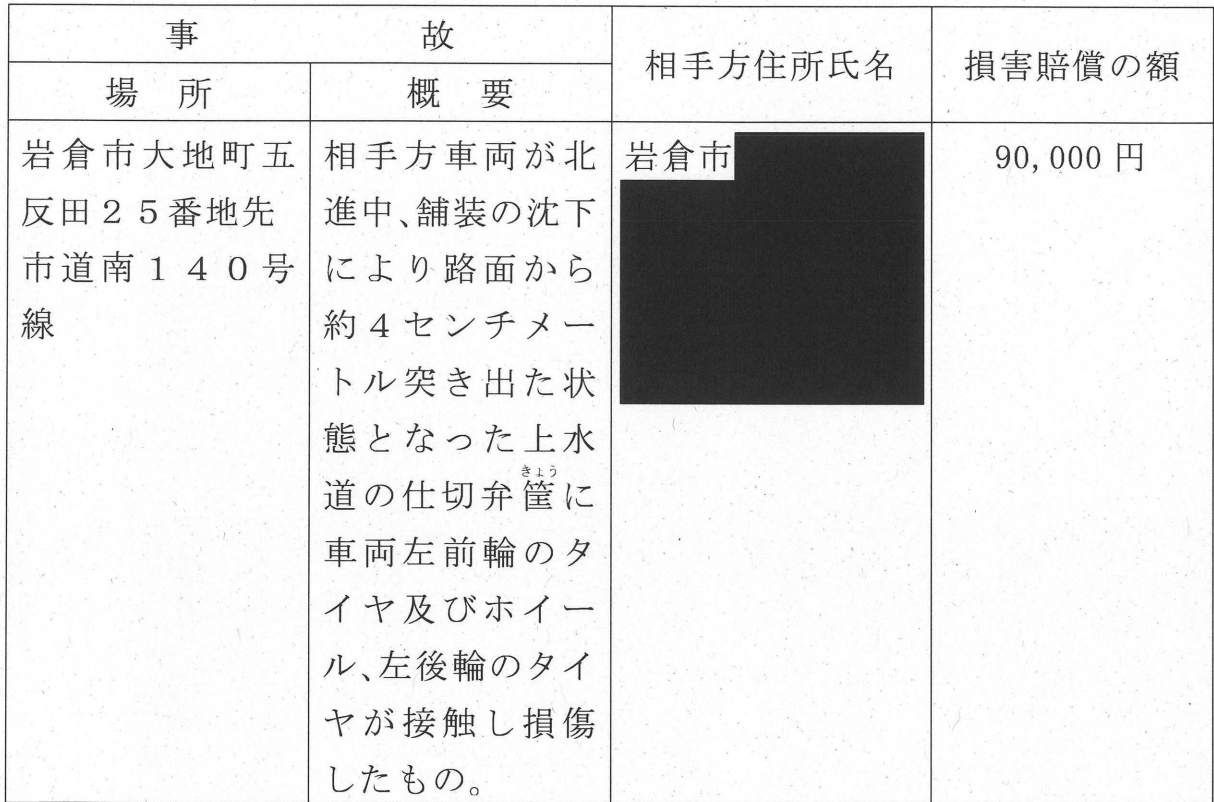 事故
相手方住所氏名
損害賠償の額
場所
概要
岩倉市大地町五
反田25番地先
市道南140号
線
相手方車両が北
進中、舗装の沈下
により路面から
約4センチメー
トル突き出た状
態となった上水
道の仕切弁筐に
きょう
車両左前輪のタ
イヤ及びホイー
ル、左後輪のタイ
ヤが接触し損傷
したもの。
岩倉市
90,000円